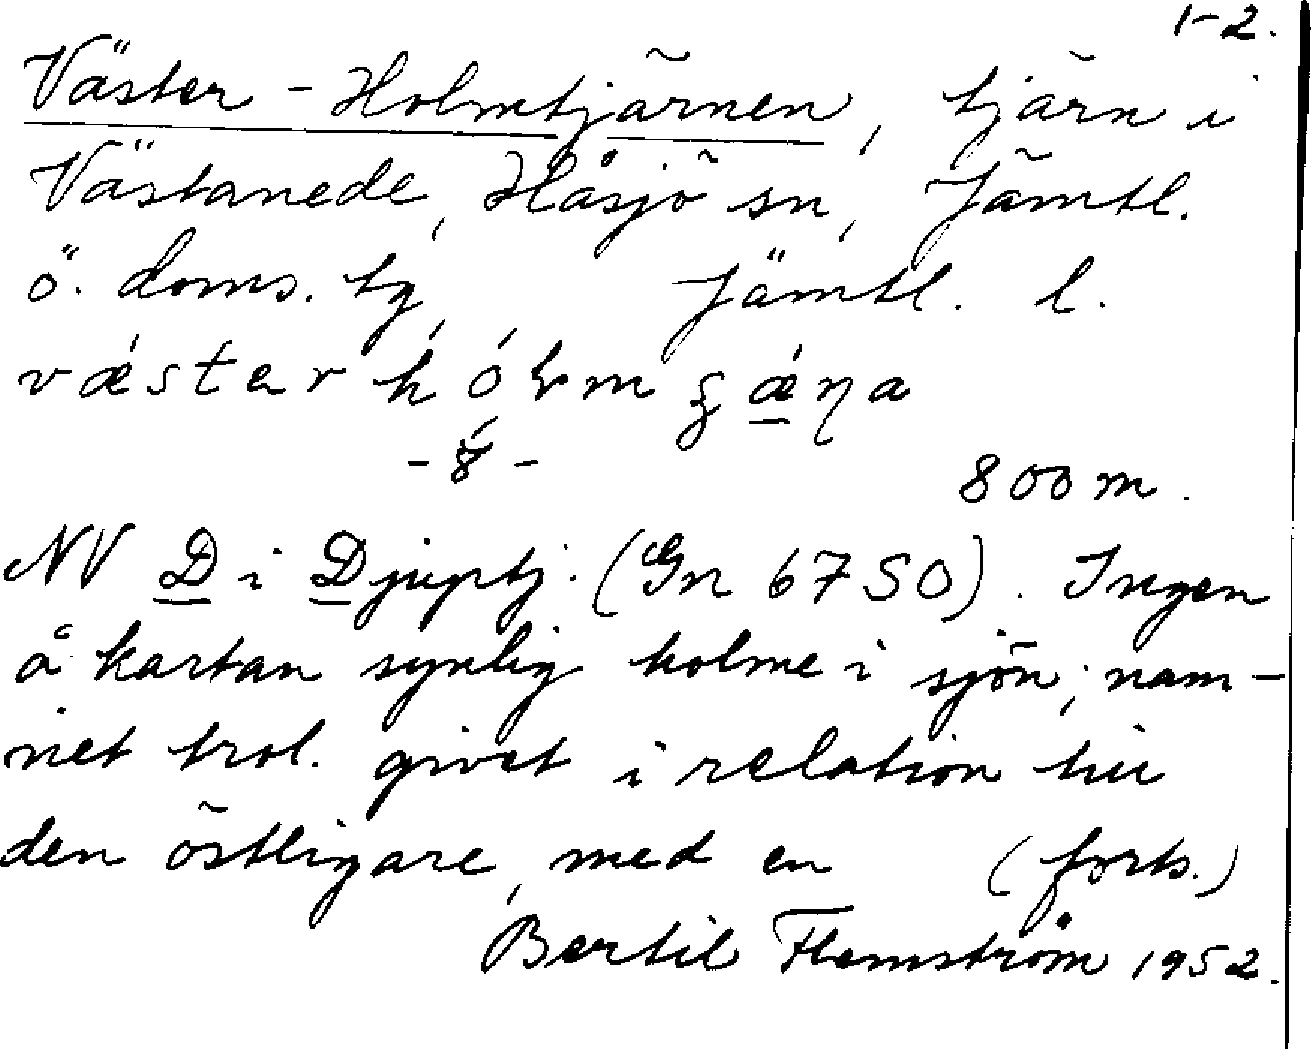 1-2.
Väster-Holmtjärnen, tjärn i
Västanede, Håsjö sn, Jämtl.
ö. doms. tg, Jämtl. l.
800 m.
NV D i Djuptj. (Gn 67 SO). Ingen
å kartan synlig holme i sjön; nam-
net trol. givet i relation till
den östligare, med en (forts.)
Bertil Flemström 1952.